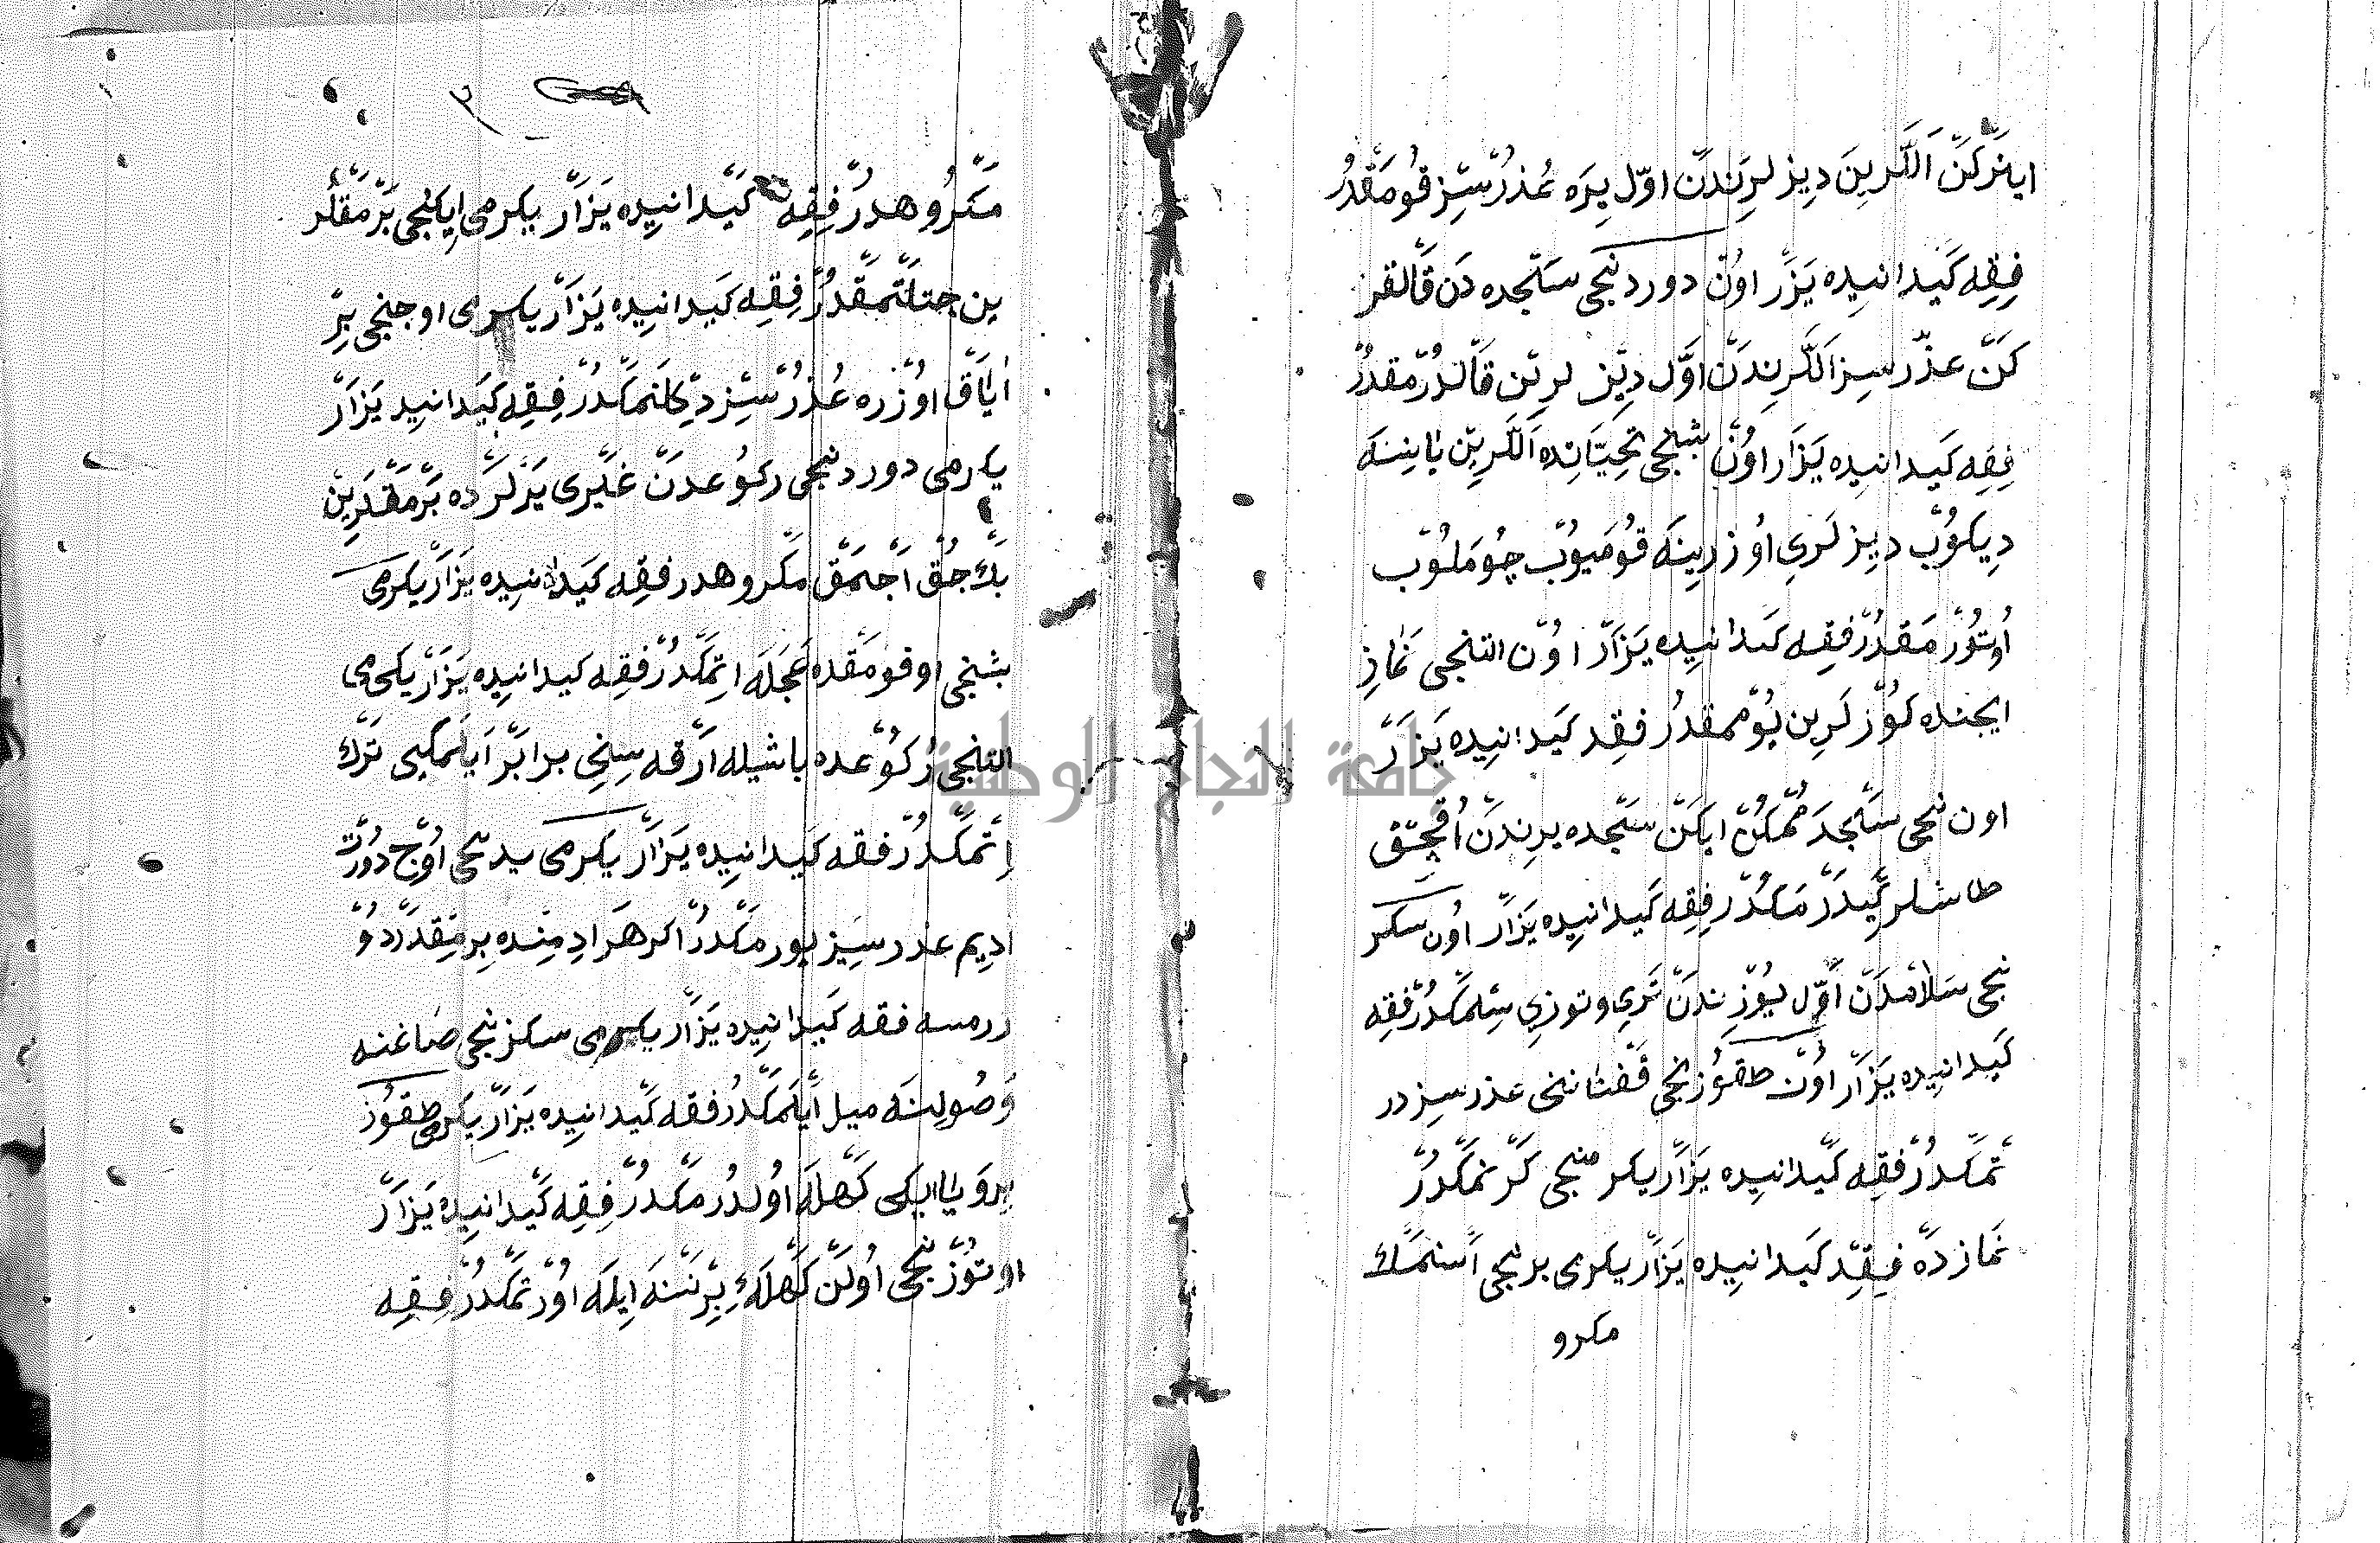 اينركن اللرين ديزلرندن اول يره عذرسز قومقدر
فقه كيدانيده يزر اون دوردنجى سجده دن قالقر
كن عذرسز اللرندن اول ديزلرين قالدرمقدر
فقه كيدانيده يزار اون بشنجى تحيتانده اللرين يانينه
ديكوب ديزلرى اوزرينه قوميوب چوملوب
اوتورمقدر فقه كيدانيده يزار اون التنجى نماز
ايچنده كوزلرين يوممقدر فقه كيدانيده يزر
اون نجى سجده ممكن ايكن سجده يرندن اوقجق
طاشلر كيدرمكدر فقه كيدانيده يزار اون سكز
نجى سلامدن اول يوزندن ترى وتوزى سلمكدر فقه
كيدانيده يزار اون طقوزنجى قفتاننى عذرسز در
تمكدر فقه كيدانيده يزار يكرمنجى كرنمكدر
نمازده فقه كيدانيده يزار يكرمى برنجى اسنمك
مكرو
٣
مكروهدر فقه كيدانيده يزار يكرمى ايكنجى برمقلر
ين چتلتمقدر فقه كيدانيده يزار يكرمى اوجنجى بر
اياق اوزره عذرسز ديكلنمكدر فقه كيدانيد يزار
يكرمى دوردنجى ركوعدن غيرى يرلرده برمقلرين
بك چوق اچمق مكروهدر فقه كيدانيده يزار يكرمى
بشنجى اوقومقده عجله اتمكدر فقه كيدانيده يزار يكرمى
التنجى ركوعده باشيله ارقه سنى برابر ايلمكى ترك
اتمكدر فقه كيدانيده يزار يكرمى يدنجى اوچ دورت
اديم عذرسز يورمكدر اكر هر ادمنده بر مقدر دو
ررمسه فقه كيدانيده يزار يكرمى سكزنجى صاغنه
وصولنه ميل ايلمكدر فقه كيدانيده يزار يكرمى طقوز
برويا ايكى كهله اولدرمكدر فقه كيدانيده يزار
اوتوزنجى اولن كهله بر نسنه ايله اورتمكدر فقه
جامعة النجاح الوطنية